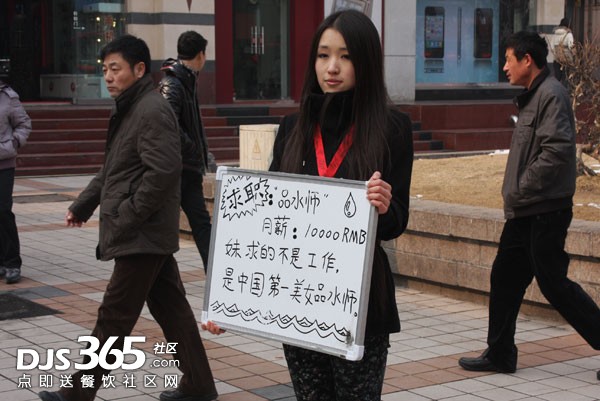 求职："品水师"
月薪：10000RMB
妹求的不是工作，
是中国第一美女品水师。
DJS365社区
点即送餐饮社区网